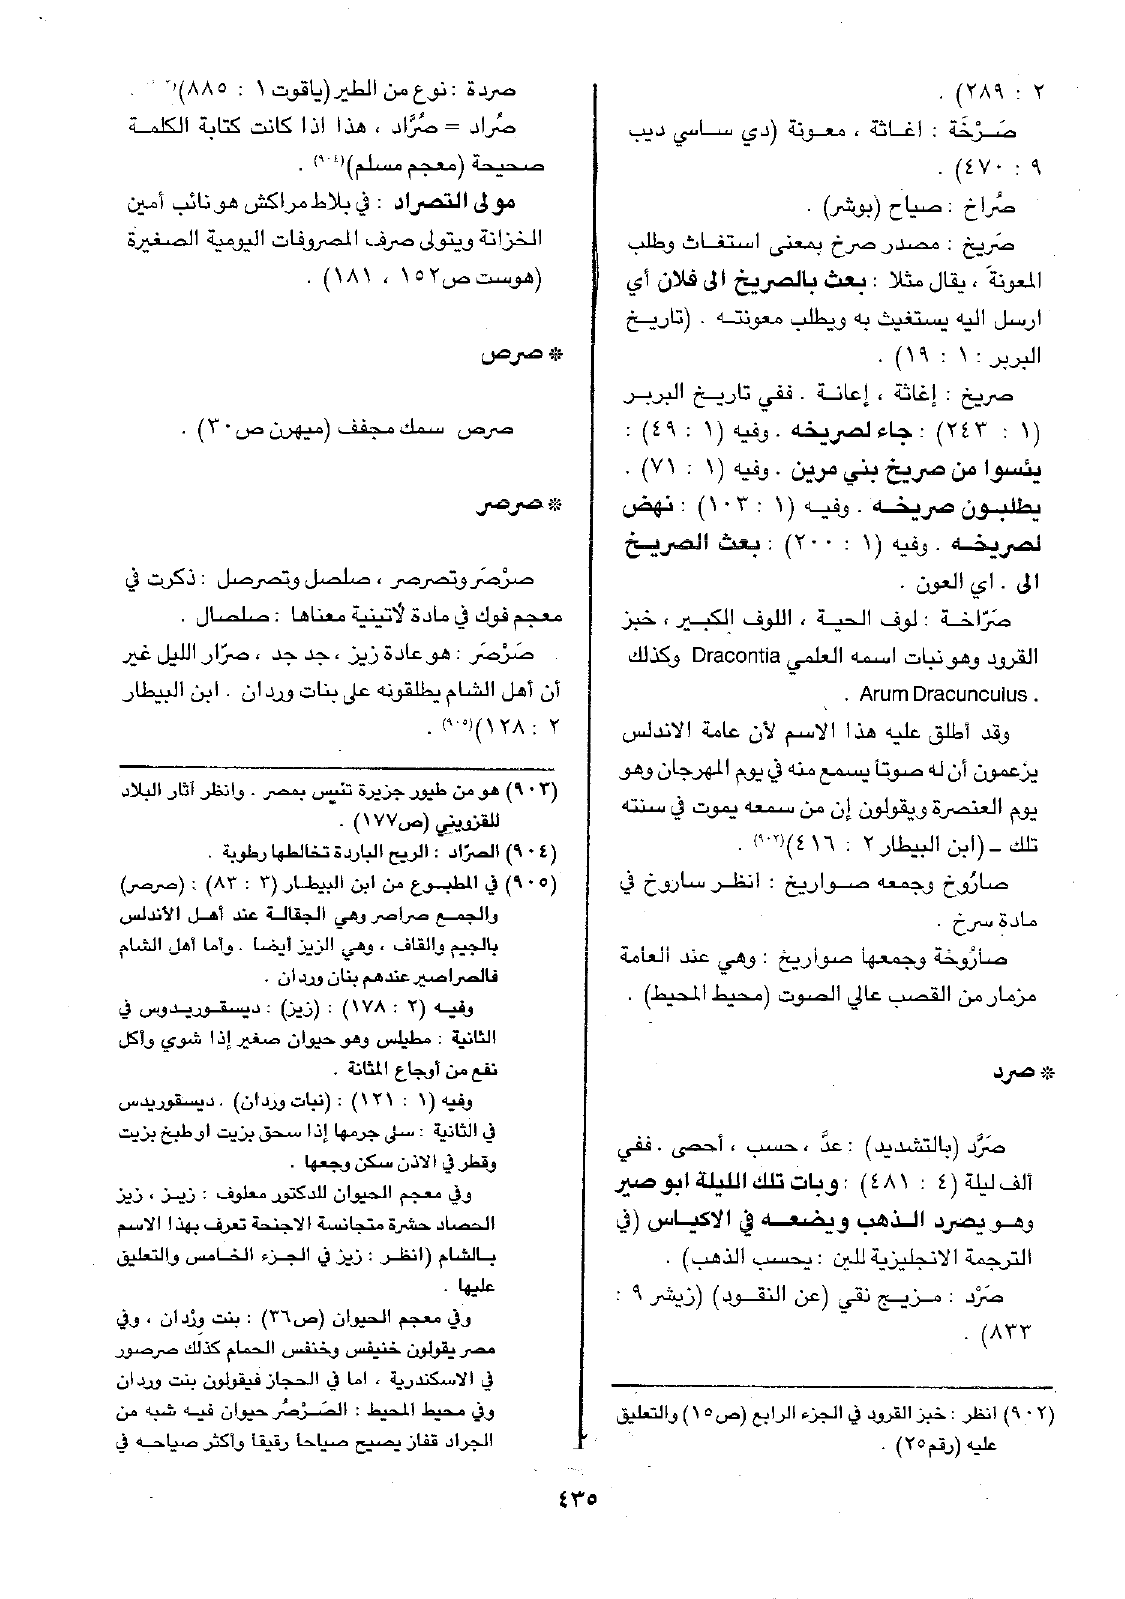 ٢ : ٢٨٩) .
صَـرْخَة : اغـاثة ، معـونة (دي سـاسي ديب
٩ : ٤٧٠) .
صُراخ : صياح (بوشر) .
صَريخ : مصدر صرخ بمعنى استغاث وطلب
المعونة ، يقال مثلا : بعث بالصريخ الى فلان أي
ارسل اليه يستغيث به ويطلب معونته . (تاريـخ
البربر : ١ : ١٩) .
صريخ : إغاثة ، إعانـة . ففي تاريـخ البربـر
(١ : ٢٤٣) : جاء لصريخه . وفيه (١ : ٤٩) :
يئسوا من صريخ بني مرين . وفيه (١ : ٧١) .
يطلبـون صريخـه . وفيـه (١ : ١٠٣) : نهض
لصريخـه . وفيه (١ : ٢٠٠) : بعث الصريـخ
الى . اي العون .
صَرّاخـة : لوف الحيـة ، اللوف الكبيـر ، خبز
القرود وهو نبات اسمه العلمي Dracontia وكذلك
Arum Dracunculus .
وقد أطلق عليه هذا الاسم لأن عامة الاندلس
يزعمون أن له صوتاً يسمع منه في يوم المهرجان وهو
يوم العنصرة ويقولون إن من سمعه يموت في سنته
تلك ـ (ابن البيطار ٢ : ٤١٦)(٩٠٢) .
صارُوخ وجمعه صـواريخ : انظـر ساروخ في
مادة سرخ .
صارُوخة وجمعها صواريخ : وهي عند العامة
مزمار من القصب عالي الصوت (محيط المحيط) .
* صرد
صَرَّد (بالتشديد) : عدَّ ، حسب ، أحصى . ففي
ألف ليلة (٤ : ٤٨١) : وبات تلك الليلة ابو صير
وهـو يصرد الـذهب ويضعـه في الاكيـاس (في
الترجمة الانجليزية للين : يحسب الذهب) .
صَرْد : مـزيـج نقي (عن النقـود) (زيشر ٩ :
٨٣٣) .
(٩٠٢) انظر : خبز القرود في الجزء الرابع (ص١٥) والتعليق
عليه (رقم ٢٥) .
صردة : نوع من الطير (ياقوت ١ : ٨٨٥) .
صُراد = صُرَّاد ، هذا اذا كانت كتابة الكلمـة
صحيحة (معجم مسلم)(٩٠٤) .
مولى التصراد : في بلاط مراكش هو نائب أمين
الخزانة ويتولى صرف المصروفات اليومية الصغيرة
(هوست ص١٥٢ ، ١٨١) .
* صرص
صرص سمك مجفف (ميهرن ص٣٠) .
* صرصر
صَرْصَر وتصرصر ، صلصل وتصرصل : ذكرت في
معجم فوك في مادة لاتينية معناها : صلصال .
صَرْصَر : هو عادة زيز ، جد جد ، صرّار الليل غير
أن أهل الشام يطلقونه على بنات وردان . ابن البيطار
٢ : ١٢٨)(٩٠٥) .
(٩٠٣) هو من طيور جزيرة تنيس بمصر . وانظر آثار البلاد
للقزويني (ص١٧٧) .
(٩٠٤) الصرّاد : الريح الباردة تخالطها رطوبة .
(٩٠٥) في المطبـوع من ابن البيطـار (٣ : ٨٣) : (صرصر)
والجمـع صراصر وهي الجقالـة عند أهـل الأندلس
بالجيم والقاف ، وهي الزيز أيضـا . وأما أهل الشام
فالصراصير عندهم بنان وردان .
وفيـه (٢ : ١٧٨) : (زيز) : ديسقـوريـدوس في
الثانية : مطيلس وهو حيوان صغير إذا شوي وأكل
نفع من أوجاع المثانة .
وفيه (١ : ١٢١) : (نبات وردان) . ديسقوريدس
في الثانية : سلى جرمها إذا سحق بزيت او طبخ بزيت
وقطر في الاذن سكن وجعها .
وفي معجم الحيوان للدكتور معلوف : زيـز ، زيز
الحصاد حشرة متجانسة الاجنحة تعرف بهذا الاسم
بـالشام (انظـر : زيز في الجـزء الخـامس والتعليق
عليها .
وفي معجم الحيوان (ص٣٦) : بنت وَرْدان ، وفي
مصر يقولون خنيفس وخنفس الحمام كذلك صرصور
في الاسكندرية ، اما في الحجاز فيقولون بنت وردان
وفي محيط المحيط : الصَـرْصُر حيوان فيـه شبه من
الجراد قفاز يصيح صياحاً رقيقاً وأكثر صياحـه في
٤٣٥